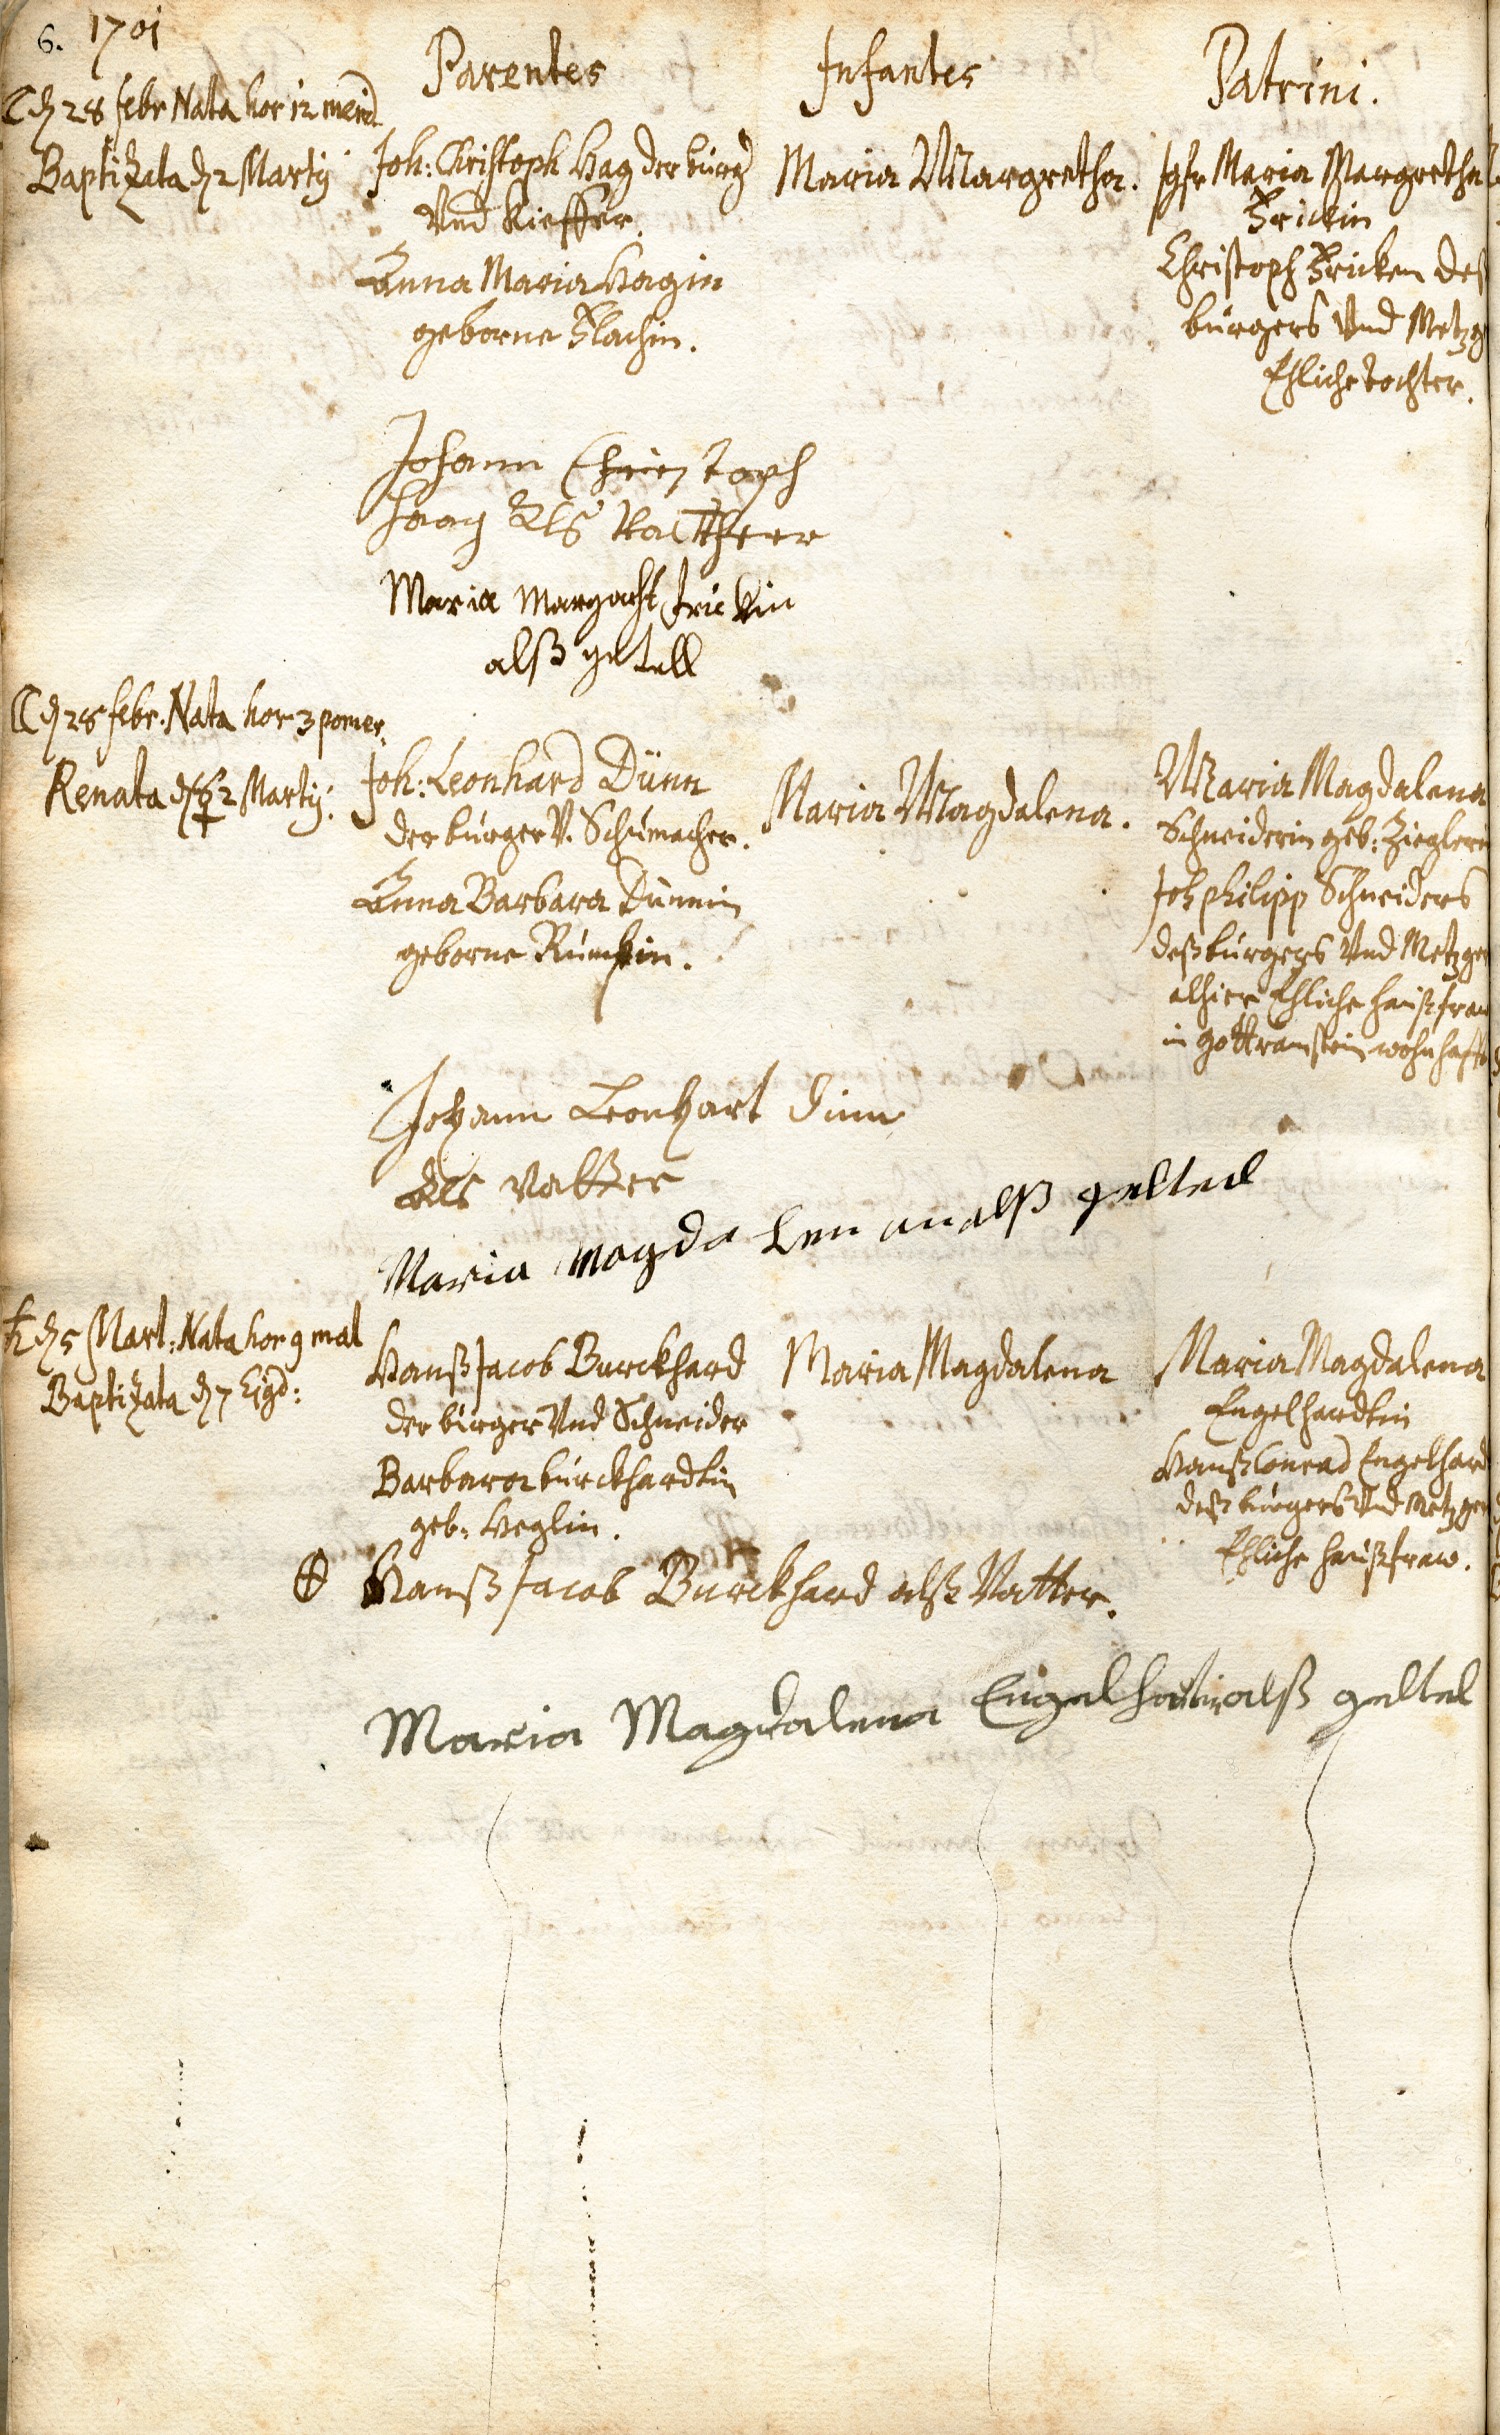 6. 1701
Parentes
Infantes
Patrini.
☾ d 28 febr Nata hor 12 merid
Baptizata d 2 Martij
Joh: Christoph Hag der burg
Und Kieffer.
Anna Maria Hagin
geborne Flachin.
Maria Margretha.
Jgfr Maria Margretha
Frickin
Christoph Fricken deß
burgers Und Metzg
Ehliche tochter.
Johann Christoph
Haag Als Vattherr
Maria Margacht frickin
alß getell
☾ d 28 febr. Nata hor 3 pomer.
Renata d 2 Martij.
Joh: Leonhard Dünn
der burger V. Schumacher.
Anna Barbara Dünnin
geborne
Maria Magdalena.
Maria Magdalena
Schneiderin geb: Zieglerin
Joh philipp Schneiders
deß burgers Und Metzger
alhier Ehliche haußfraw
in gottramstein wohnhafft
Johann Leonhart Dinn
Als Vatter
Maria Magda Len an alß gelted
♄ d 5 Mart: Nata hor 9 mat
Baptizata d 7 Eijd:
Hanß Jacob Burckhard
der burger Und Schneider
Barbara burckhardtin
geb: Heglin.
Maria Magdalena
Maria Magdalena
Engelhardtin
Hanß Conrad Engelhard
deß burgers Und Metzger
Ehliche haußfraw.
Hanß Jacob Burckhard alß Vatter.
Maria Magdalena Engelhartin alß geltel